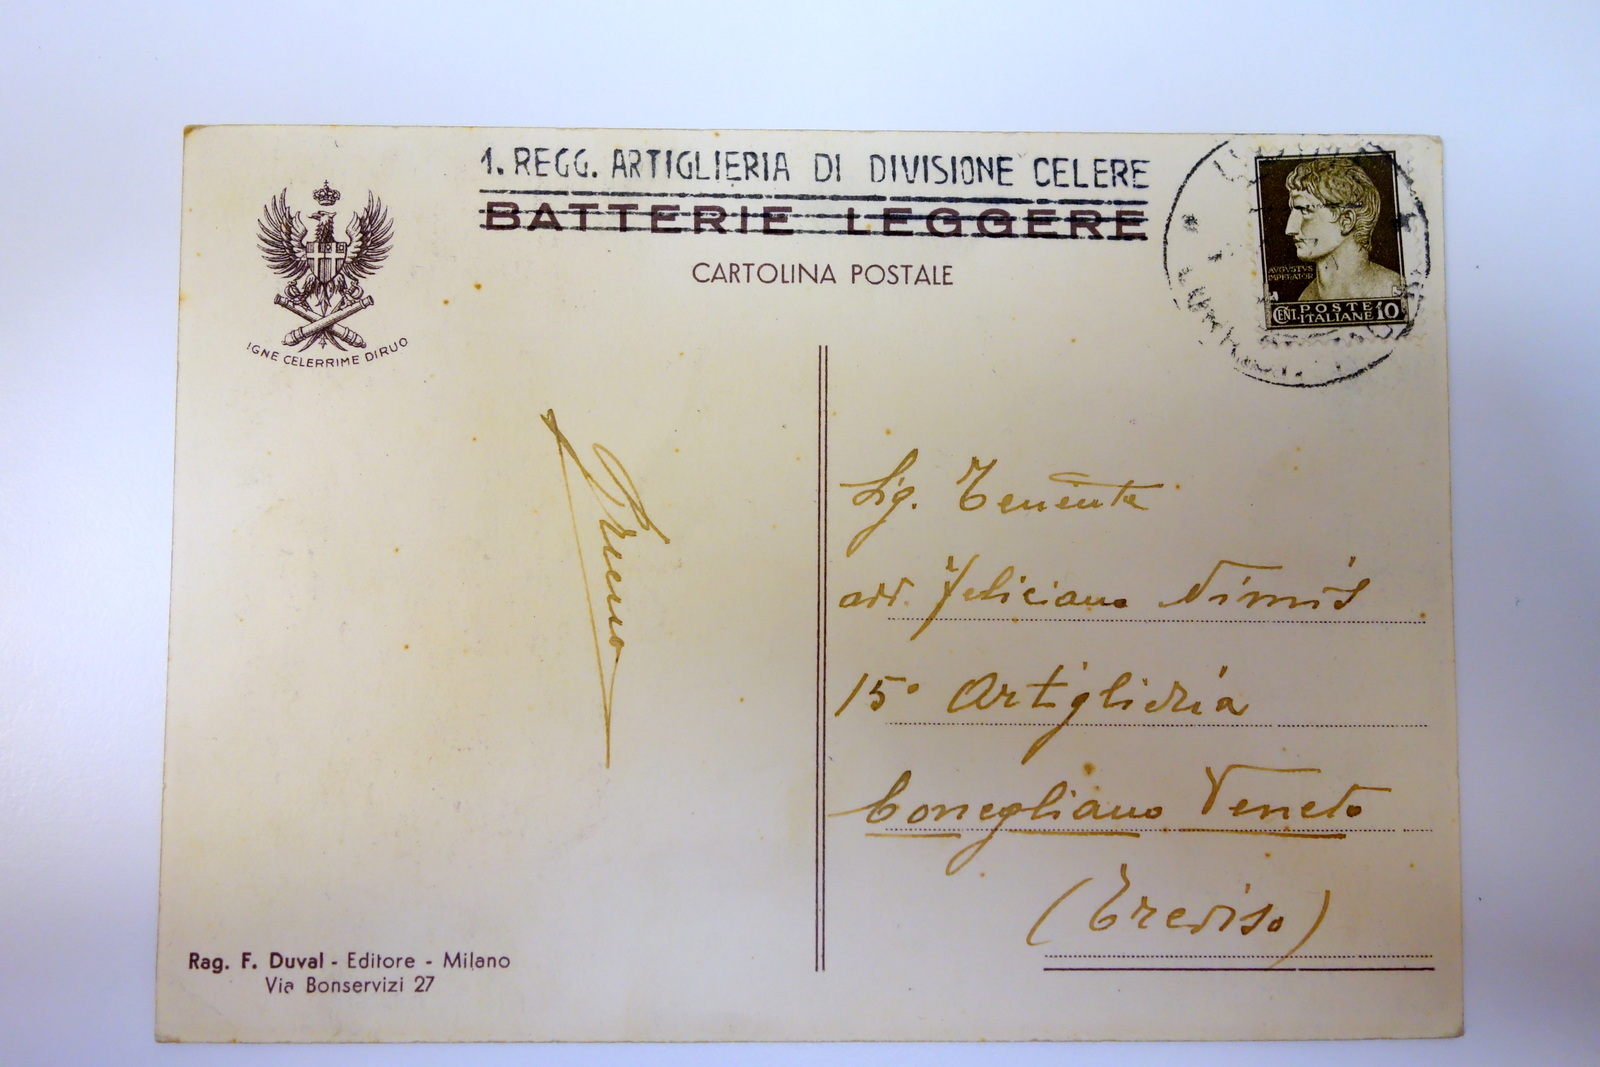 1. REGG. ARTIGLIERIA DI DIVISIONE CELERE
BATTERIE LEGGERE
CARTOLINA POSTALE
IGNE CELERRIME DIRUO
AVGVSTVS
IMPERATOR
CENT. POSTE
ITALIANE 10
Bruno
Sig. Tenente
avv. Feliciano Nimis
15° Artiglieria
Conegliano Veneto
(Treviso)
Rag. F. Duval - Editore - Milano
Via Bonservizi 27